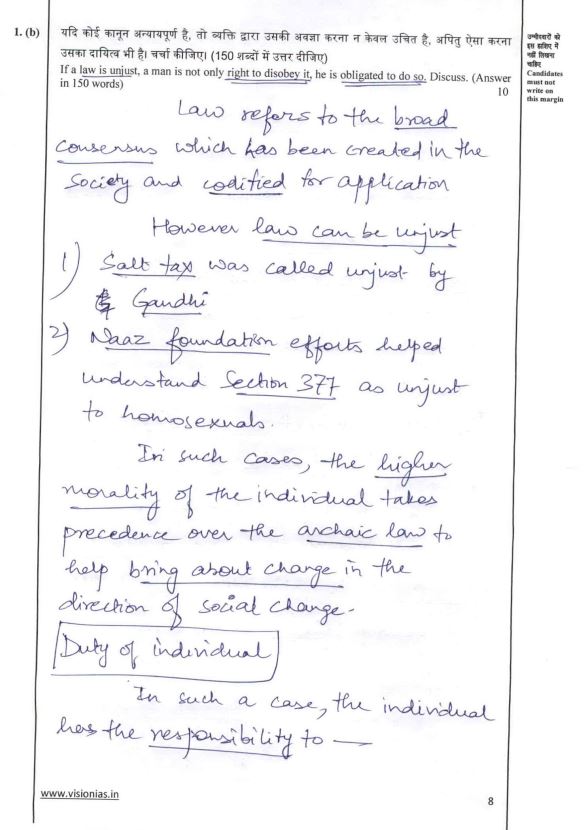 1. (b) यदि कोई कानून अन्यायपूर्ण है, तो व्यक्ति द्वारा उसकी अवज्ञा करना न केवल उचित है, अपितु ऐसा करना
उसका दायित्व भी है। चर्चा कीजिए। (150 शब्दों में उत्तर दीजिए)
If a law is unjust, a man is not only right to disobey it, he is obligated to do so. Discuss. (Answer
in 150 words) 10
उम्मीदवारों को
इस हाशिए में
नहीं लिखना
चाहिए
Candidates
must not
write on
this margin
Law refers to the broad
consensus which has been created in the
society and codified for application
However law can be unjust
1) Salt tax was called unjust by
Gandhi
2) Naaz foundation efforts helped
understand Section 377 as unjust
to homosexuals.
In such cases, the higher
morality of the individual takes
precedence over the archaic law to
help bring about change in the
direction of social change.
Duty of individual
In such a case, the individual
has the responsibility to —
www.visionias.in
8